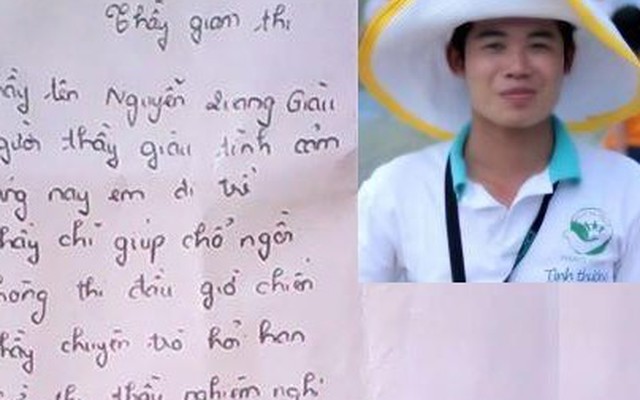 Thầy giam thi
ầy tên Nguyễn Quang Giàu
gười thầy giàu tình cảm
ng nay em đi trễ
hầy chỉ giúp chổ ngồi
hòng thi đầu giờ chiến
hầy chuyện trò hỏi han
thầy nghiêm nghi
Tình thươn